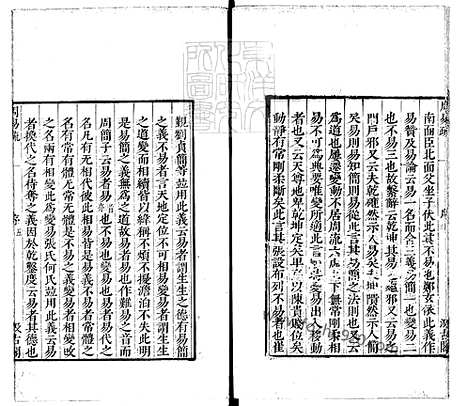 南面臣北面父坐子伏此其不易也鄭玄依此義作
易贊及易論云易一名而含三義易簡一也變易二
也不易三也故繫辭云乾坤其易之縕邪又云易之
門戶邪又云夫乾確然示人易矣夫坤隤然示人簡
矣易則易知簡則易從此言其易簡之法則也又云
為道也屢遷變動不居周流六虛上下無常剛柔相
易不可為典要唯變所適此言順時變易出入移動
者也又云天尊地卑乾坤定矣卑高以陳貴賤位矣
動靜有常剛柔斷矣此言其張設布列不易者也崔
覲劉貞簡等並用此義云易者謂生生之德有易簡
之義不易者言天地定位不可相易變易者謂生生
之道變而相續皆以緯稱不煩不擾澹泊不失此明
是易簡之義無為之道故易者易也作難易之音而
周簡子云易者易也不易者變易也易者易代之
名凡有無相代彼此相易皆是易義不易者常體之
名有常有體無常無體是不易之義變易者相變改
之名兩有相變此為變易張氏何氏並用此義云易
者換代之名待奪之義因於乾鑿度云易者其德也
周易疏
序 五
汲古閣